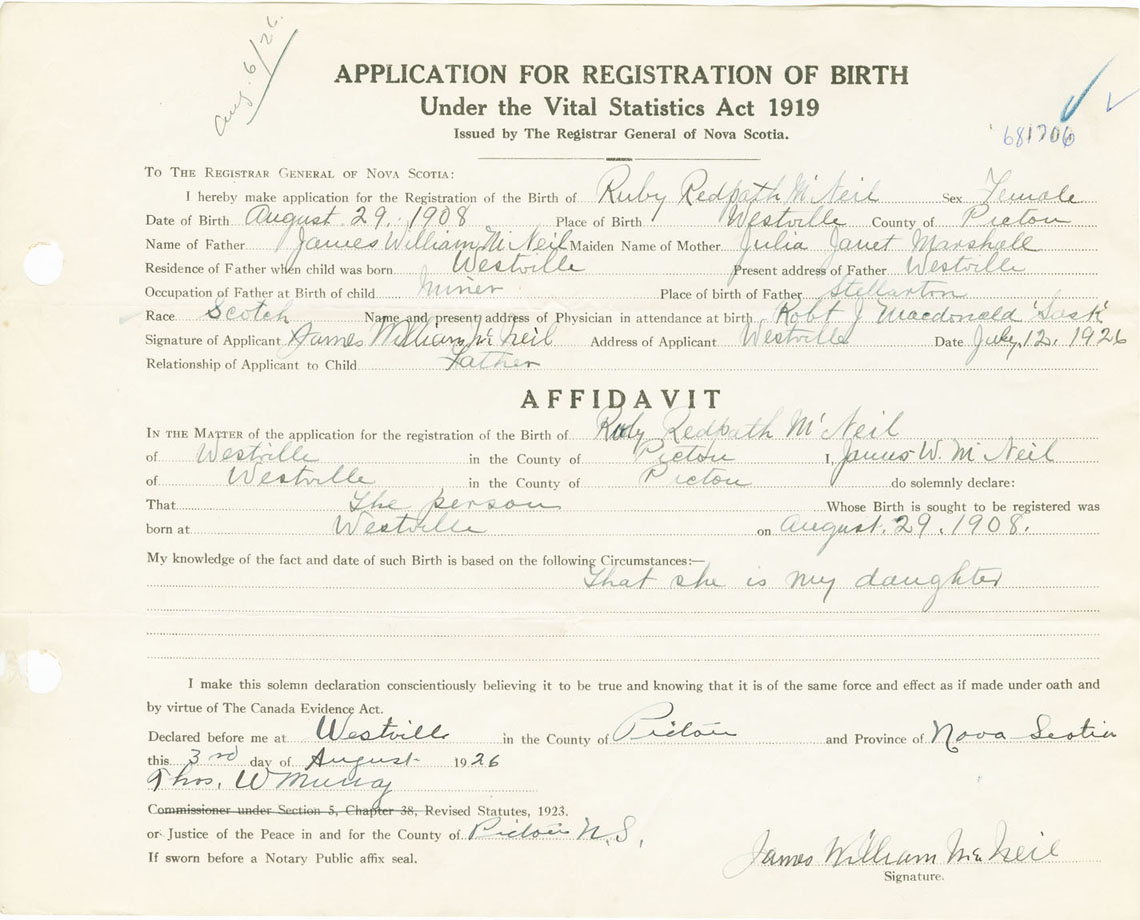 Aug. 6/26.
APPLICATION FOR REGISTRATION OF BIRTH
Under the Vital Statistics Act 1919
Issued by The Registrar General of Nova Scotia.
681706
TO THE REGISTRAR GENERAL OF NOVA SCOTIA:
I hereby make application for the Registration of the Birth of Ruby Redpath McNeil Sex Female
Date of Birth August. 29. 1908 Place of Birth Westville County of Pictou
Name of Father James William McNeil Maiden Name of Mother Julia Janet Marshall
Residence of Father when child was born Westville Present address of Father Westville
Occupation of Father at Birth of child Miner Place of birth of Father Stellarton
Race Scotch Name and present address of Physician in attendance at birth Robt J Macdonald 'Sask'
Signature of Applicant James William McNeil Address of Applicant Westville Date July. 12. 1926
Relationship of Applicant to Child Father
AFFIDAVIT
IN THE MATTER of the application for the registration of the Birth of Ruby Redpath McNeil
of Westville in the County of Pictou I, James W. McNeil
of Westville in the County of Pictou do solemnly declare:
That The person Whose Birth is sought to be registered was
born at Westville on August. 29. 1908.
My knowledge of the fact and date of such Birth is based on the following Circumstances:—
That she is my daughter
I make this solemn declaration conscientiously believing it to be true and knowing that it is of the same force and effect as if made under oath and
by virtue of The Canada Evidence Act.
Declared before me at Westville in the County of Pictou and Province of Nova Scotia
this 3rd day of August 1926
Thos. W Murray
Commissioner under Section 5, Chapter 38, Revised Statutes, 1923.
or Justice of the Peace in and for the County of Pictou N.S.,
If sworn before a Notary Public affix seal.
James William McNeil
Signature.